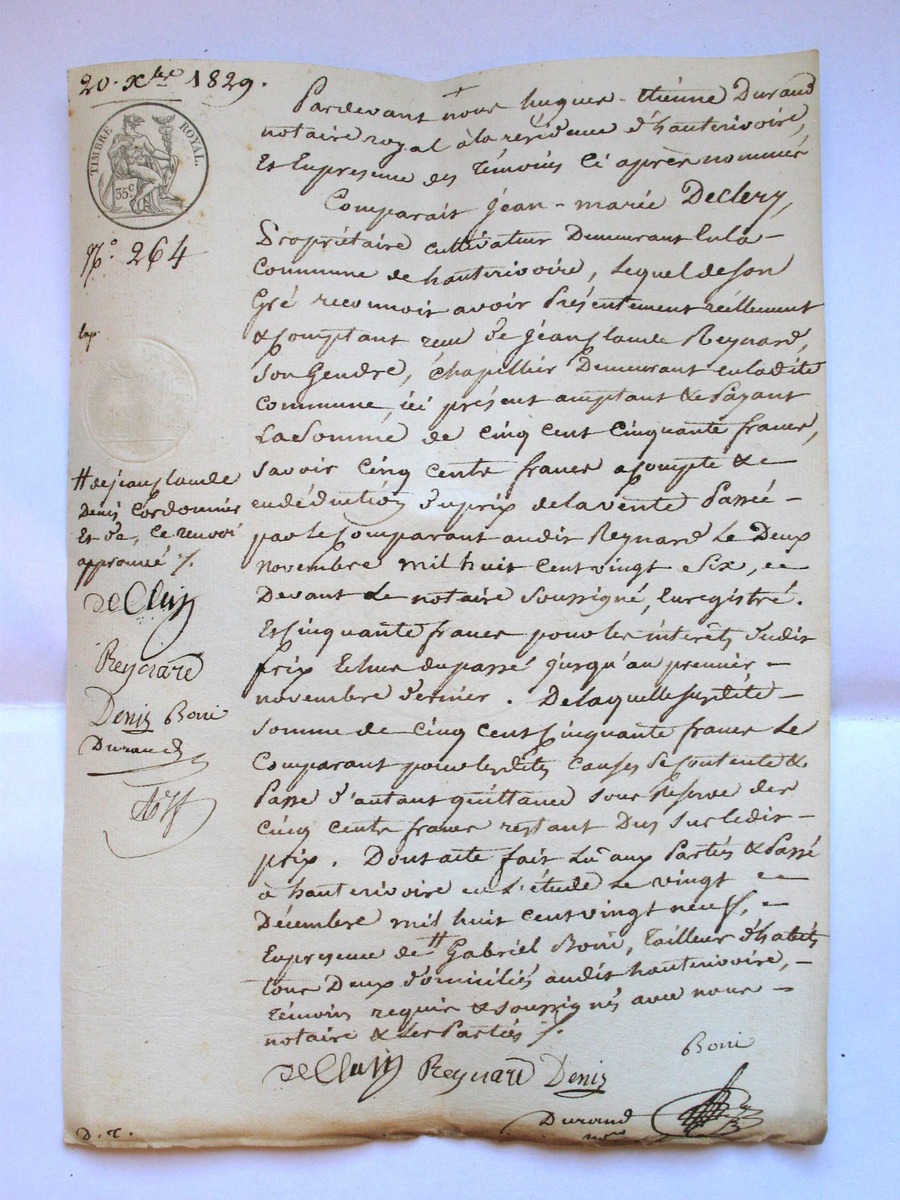 20. Xbre 1829.
TIMBRE ROYAL.
35c
No. 264
Enr.
# de jean claude
Denis Cordonnier
Et de, ce renvoi
approuvé ./.
deClery
Reynard
Denis Boni
Durand
Pardevant nous hugues-étienne Durand
notaire royal à la résidence d'hauterivoire,
Et En presence des témoins Ci après nommés
Comparait jean-marie Declery,
Propriétaire cultivateur Demeurant En la-
Commune de hauterivoire, Lequel de son
Gré reconnoit avoir Présentement réellement
& comptant reçu de jean claude Reynard,
Son Gendre, chapellier Demeurant en ladite
Commune, ici présent acceptant & Payant
La Somme de cinq cent cinquante francs,
Savoir cinq cents francs acompte & e
en déduction du prix de la vente Passée-
par le Comparant audit Reynard Le Deux
novembre mil huit cent vingt e Six, e
Devant Le notaire Soussigné, Enregistré.
Et Cinquante francs pour les intérêts dudit
prix Echus du passé jusqu'au premier-
novembre dernier. De laquelle susdite-
Somme de cinq cent Cinquante francs Le
Comparant pour lesdites causes Se contente &
Passe d'autant quittance Sous Réserve des
cinq cents francs restant Dus Sur ledit-
prix. Dont acte fait Lu aux Parties & Passé
à hauterivoire en L'étude Le vingt e
Décembre mil huit cent vingt neuf, e
En presence de # Gabriel Boni, Tailleur d'habits
tous Deux domiciliés audit hauterivoire,-
témoins requis & Soussignés avec nous-
notaire & Les Parties ./.
deClery Reynard Denis
Boni
Durand
nore
D. C.